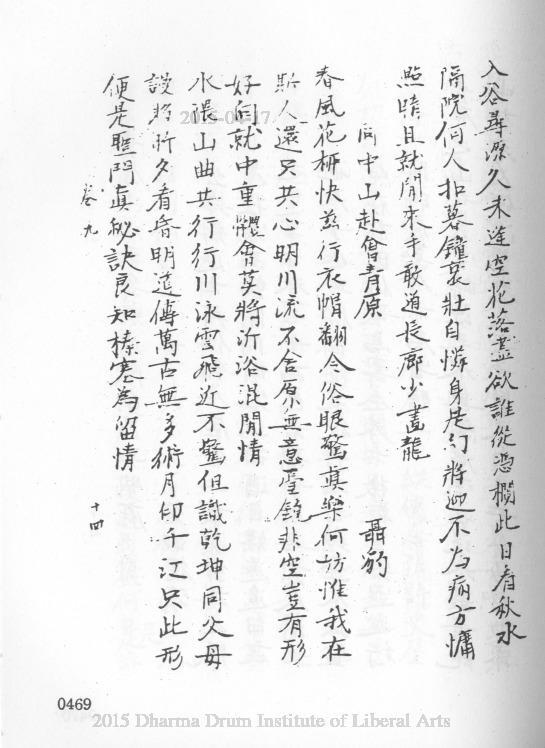 入谷尋源久未逢空花落盡欲誰從憑欄此日看秋水
隔院何人扣暮鐘衰壯自憐身是幻將迎不為病方慵
點睛且就閒來手敢道長廊少畫龍
同中山赴會青原
聶豹
春風花柳快茲行衣帽翻令俗眼驚真樂何妨惟我在
斯人還只共心明川流不舍原無意聖鏡非空豈有形
好向就中重體會莫將沂浴混閒情
水張山曲共行行川泳雲飛近不驚但識乾坤同父母
說將昕夕看昏明道傳萬古無多術月印千江只此形
便是聖門真秘訣良知榛塞為留情
卷九
十四
0469
2015-04-17
2015 Dharma Drum Institute of Liberal Arts